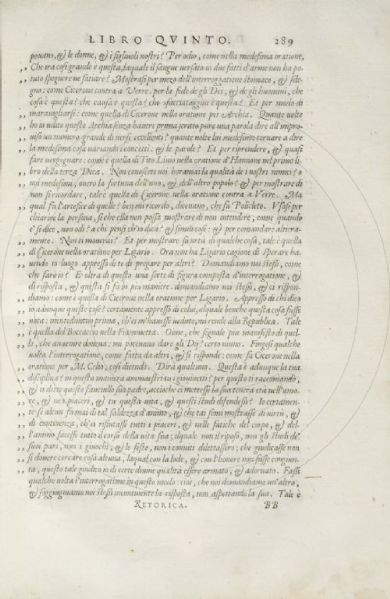 LIBRO QVINTO. 289
povano, & le donne, & i figliuoli nostri? Per odio, come nella medesima oratione,
Che ira così grande è questa, laquale il sangue versato in due fatti d'arme non ha po-
tuto spegnere ne satiare? Mostrasi per mezo dell'interrogatione stomaco, & sde-
gno: come Cicerone contra à Verre. per la fede de gli Dei, & de gli huomini, che
cosa è questa? che causa è questa? che sfacciataggine è questa? Et per modo di
maravigliarsi: come quella di Cicerone nella oratione per Archia. Quante volte
ho io udito questo Archia, senza havere prima serato pure una parola dire all'impro-
viso un numero grande di versi eccellenti? quante volte lui medesimo tornare a dire
la medesima cosa variando i concetti, & le parole? Et per riprendere, & quasi
fare vergognare: come è quella di Tito Livio nella oratione di Hannone nel primo li-
bro della terza Deca. Non conoscete voi horamai la qualità de i nostri nemici? ò
voi medesimi, overo la fortuna dell'uno, & dell'altro popolo? & per mostrare di
non si ricordare, tale è quella di Cicerone nella oratione contra à Verre. Ma
qual fu l'artefice di quelle? ben mi ricordo, dicevano, che fu Policleto. Usasi per
chiarire la persona, se che ella non possa mostrare di non intendere, come quando
e' si dice, non odi? à chi pensi ch'io dica? & simili cose: & per comandare altera-
mente. Non ti moverai? Et per mostrare
di Cicerone nella oratione per Ligario. Ora non ha Ligario cagione di sperare ha-
vendo io luogo appresso di te di pregare per altri? Domandiamo noi stessi, come
che farò io? Et oltra di questo una sorte di figura composta d'interrogatione, &
di risposta, & questa si fa in piu maniere: domandiamo noi stessi, & ci rispon-
diamo: come è quella di Cicerone nella oratione per Ligario. Appresso di chi dico
io adunque queste cose? certamente appresso di colui, ilquale benche questa cosa sapesse
nondimeno prima, ch'ei m'havesse veduto, mi rendè alla Republica. Tale
è quella del Boccaccio nella Fiammetta. Oime, che segnale piu manifesto di quel-
li, che avvenire doveva: mi potevano dare gli Dij? certo niuno. Fingesi qualche
volta l'interrogatione, come fatta da altri, & si risponde: come fa Cicerone nella
oratione per M. Celio, così dicendo. Dirà qualcuno. Questa è adunque la tua
disciplina? in questa maniera ammaestri tu i giovinetti? per questo ti raccomandò,
& ti dette questo fanciullo suo padre, accioche ei mettesse la sua tenera età nell'amo-
re, & ne i piaceri, & tu questa vita, & questi studi difendessi? Io certamen-
te se alcun fu mai di tal saldezza d'animo, & che tai segni mostrasse di virtù, &
di continenza, ch'ei rifiutasse tutti i piaceri, & nelle fatiche del corpo, & del-
l'animo facesse tutto il corso della vita sua; ilquale non il riposo, non gli studi de'
suoi pari, non i giuochi, & le feste, non i conviti dilettassero: che giudicasse non
si dovere cercare cosa alcuna, laqual con la lode, & con l'honore non fusse congiun-
ta, questo tale giudico io di certe divine qualità essere armato, & adornato. Fassi
qualche volta l'interrogatione in questo modo: cioè, che noi domandiamo un'altro,
& soggiungiamo noi stessi immantinente la risposta, non aspettando la sua. Tale è
RETORICA. BB